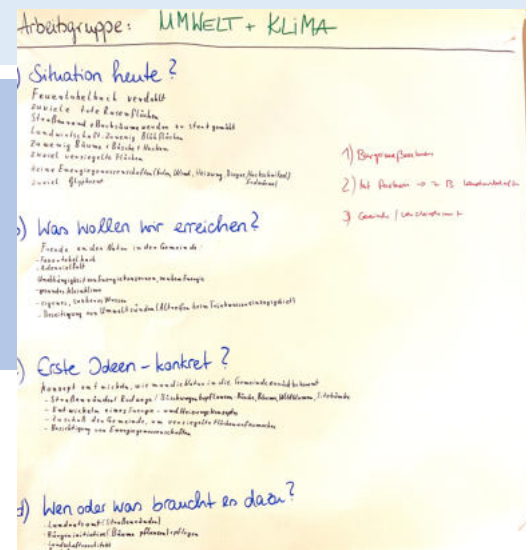 Arbeitsgruppe: UMWELT + KLIMA
Situation heute?
Feuertobelbach verdohlt
zuviele tote Rasenflächen
Straßenrand + Bachsäume werden zu stark gemäht
Landwirtschaft zuwenig Blühflächen
zu wenig Bäume + Büsche + Hecken
zuviel versiegelte Flächen
keine Energiegenossenschaften
zuviel Glyphosat
1) Bürger
2) mit → z B
3) Gemeinde /
) Was wollen wir erreichen?
Freude an der Natur in der Gemeinde
- Feuertobelbach
- Artenvielfalt
Unabhängigkeit von Energiekonzernen,
- gesundes Kleinklima
- eigenes, sauberes Wasser
- Beseitigung von Umweltsünden (Altreifen beim Trinkwassereinzugsgebiet)
) Erste Ideen - konkret?
Konzept entwickeln, wie man die Natur in die Gemeinde zurück bekommt
- Straßenränder/ Radwege / Böschungen bepflanzen - Bäume, Wildblumen,
- Entwickeln eines Energie- und Heizungskonzepts
- Zuschuß der Gemeinde, um versiegelte Flächen aufzumachen
- Besichtigung von Energiegenossenschaften
d) Wen oder was braucht es dazu?
- Landratsamt (Straßenränder)
- Bürgerinitiative (Bäume pflanzen) + pflegen